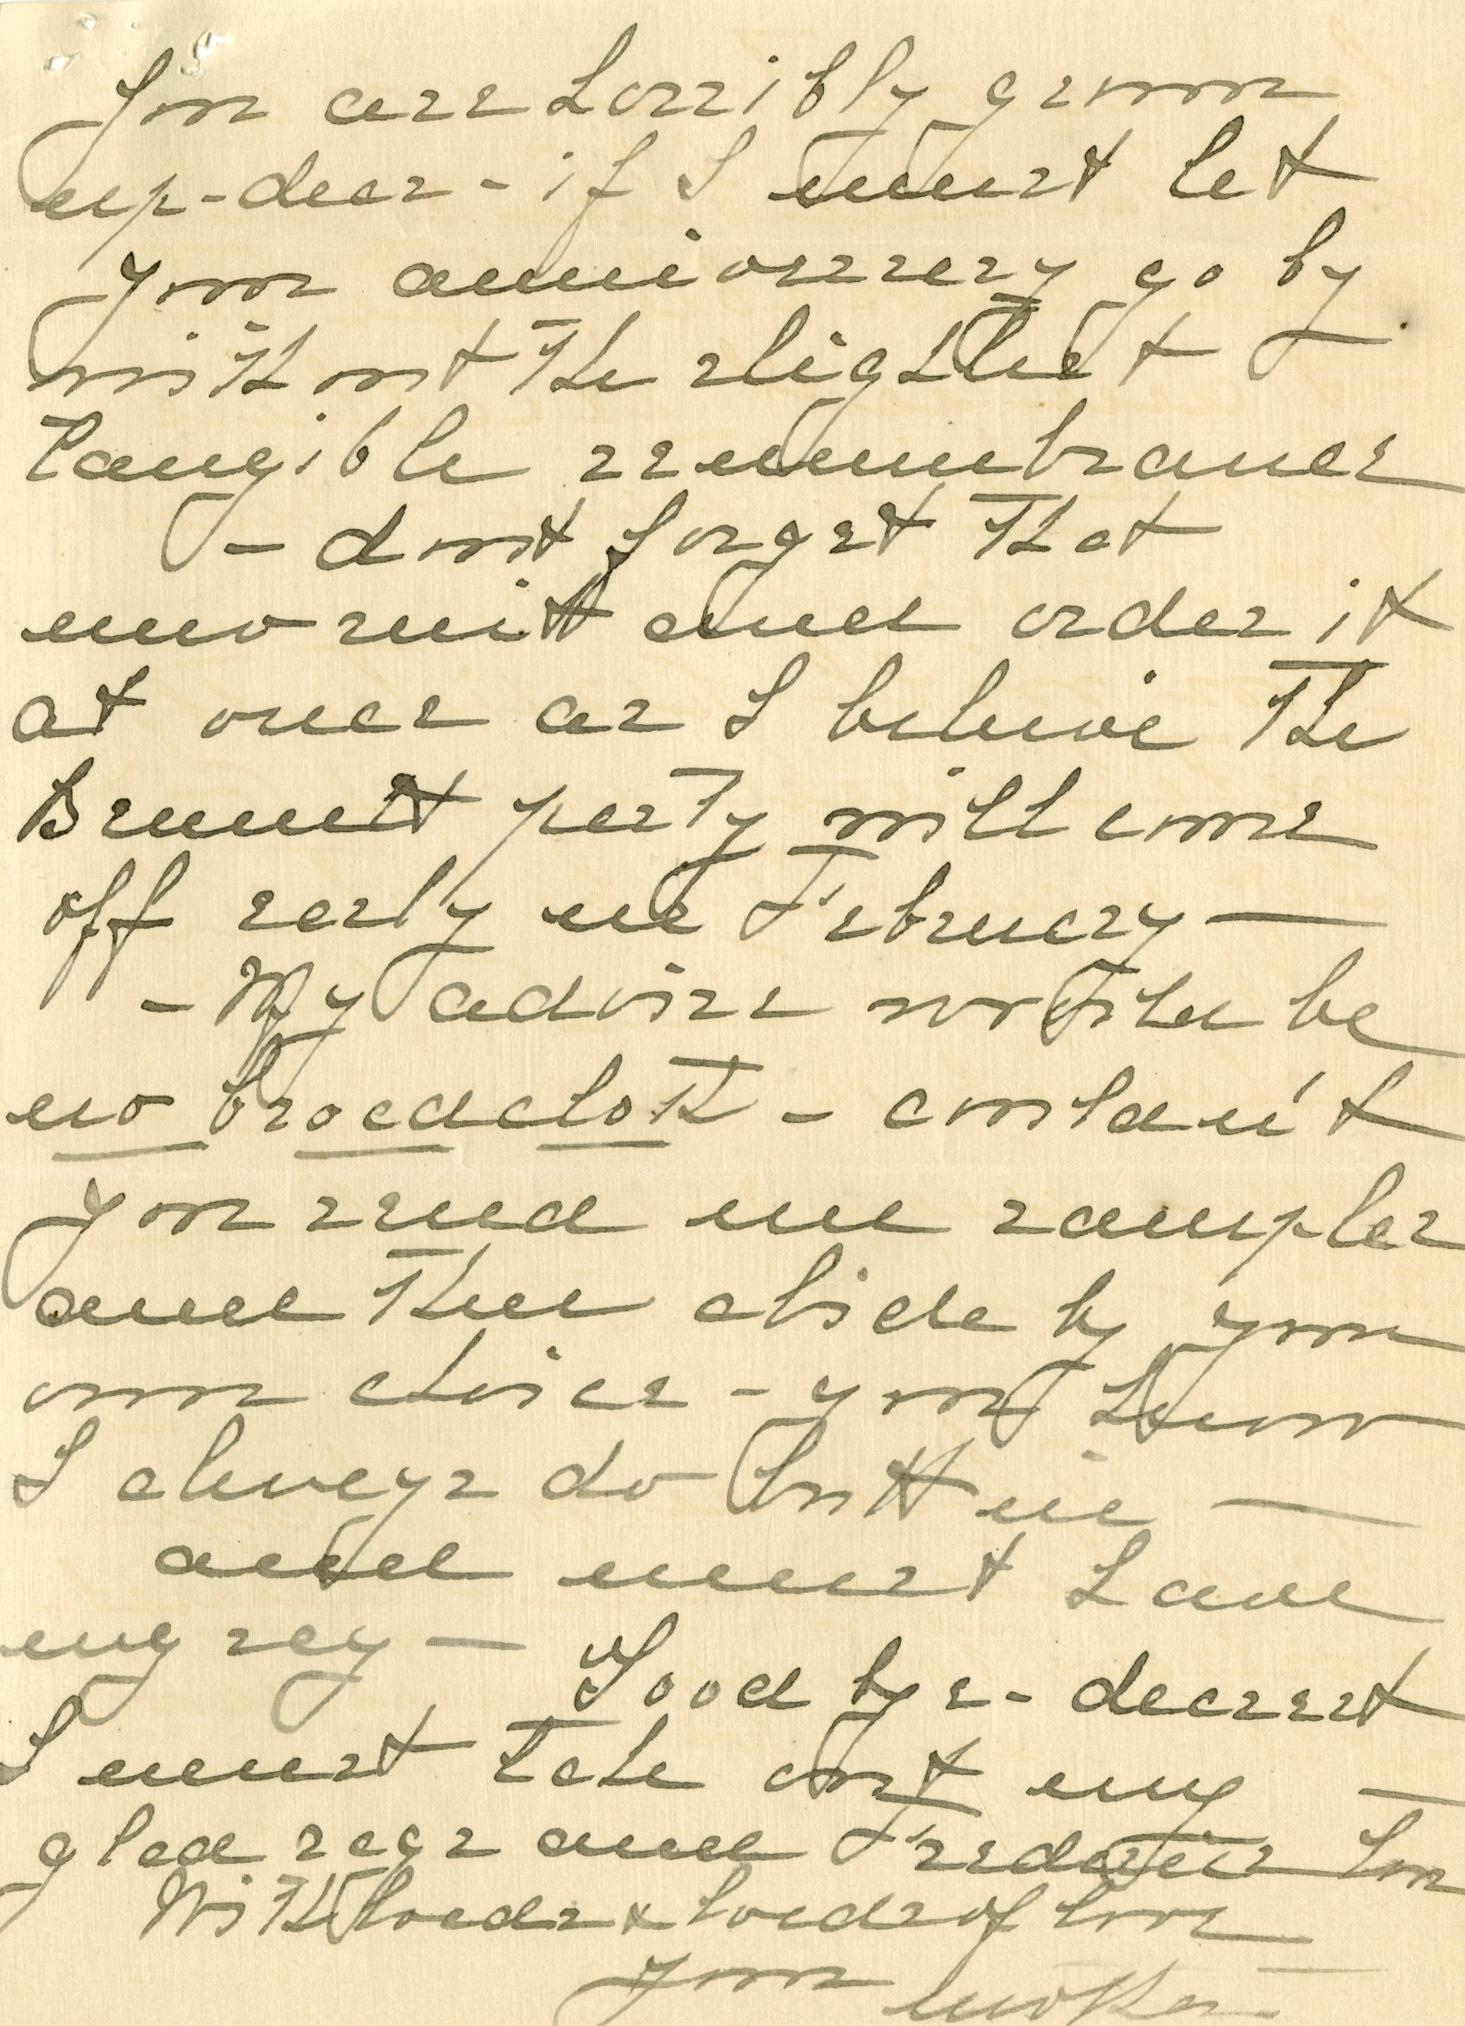 You are horribly grown
up - dear - if I must let
your anniversery go by
without the slightest
tangible remembrance
- dont forget that
new suit and order it
at once as I believe the
Bennett party will come
off early in February —
- My advise would be
no broadcloth - couldn't
you send me samples
and then abide by your
own choice - you know
I always do butt in —
and must have
my say — Good bye - dearest
I must take out my —
glad rags and Fredonia too
With loads & loads of love
your mother